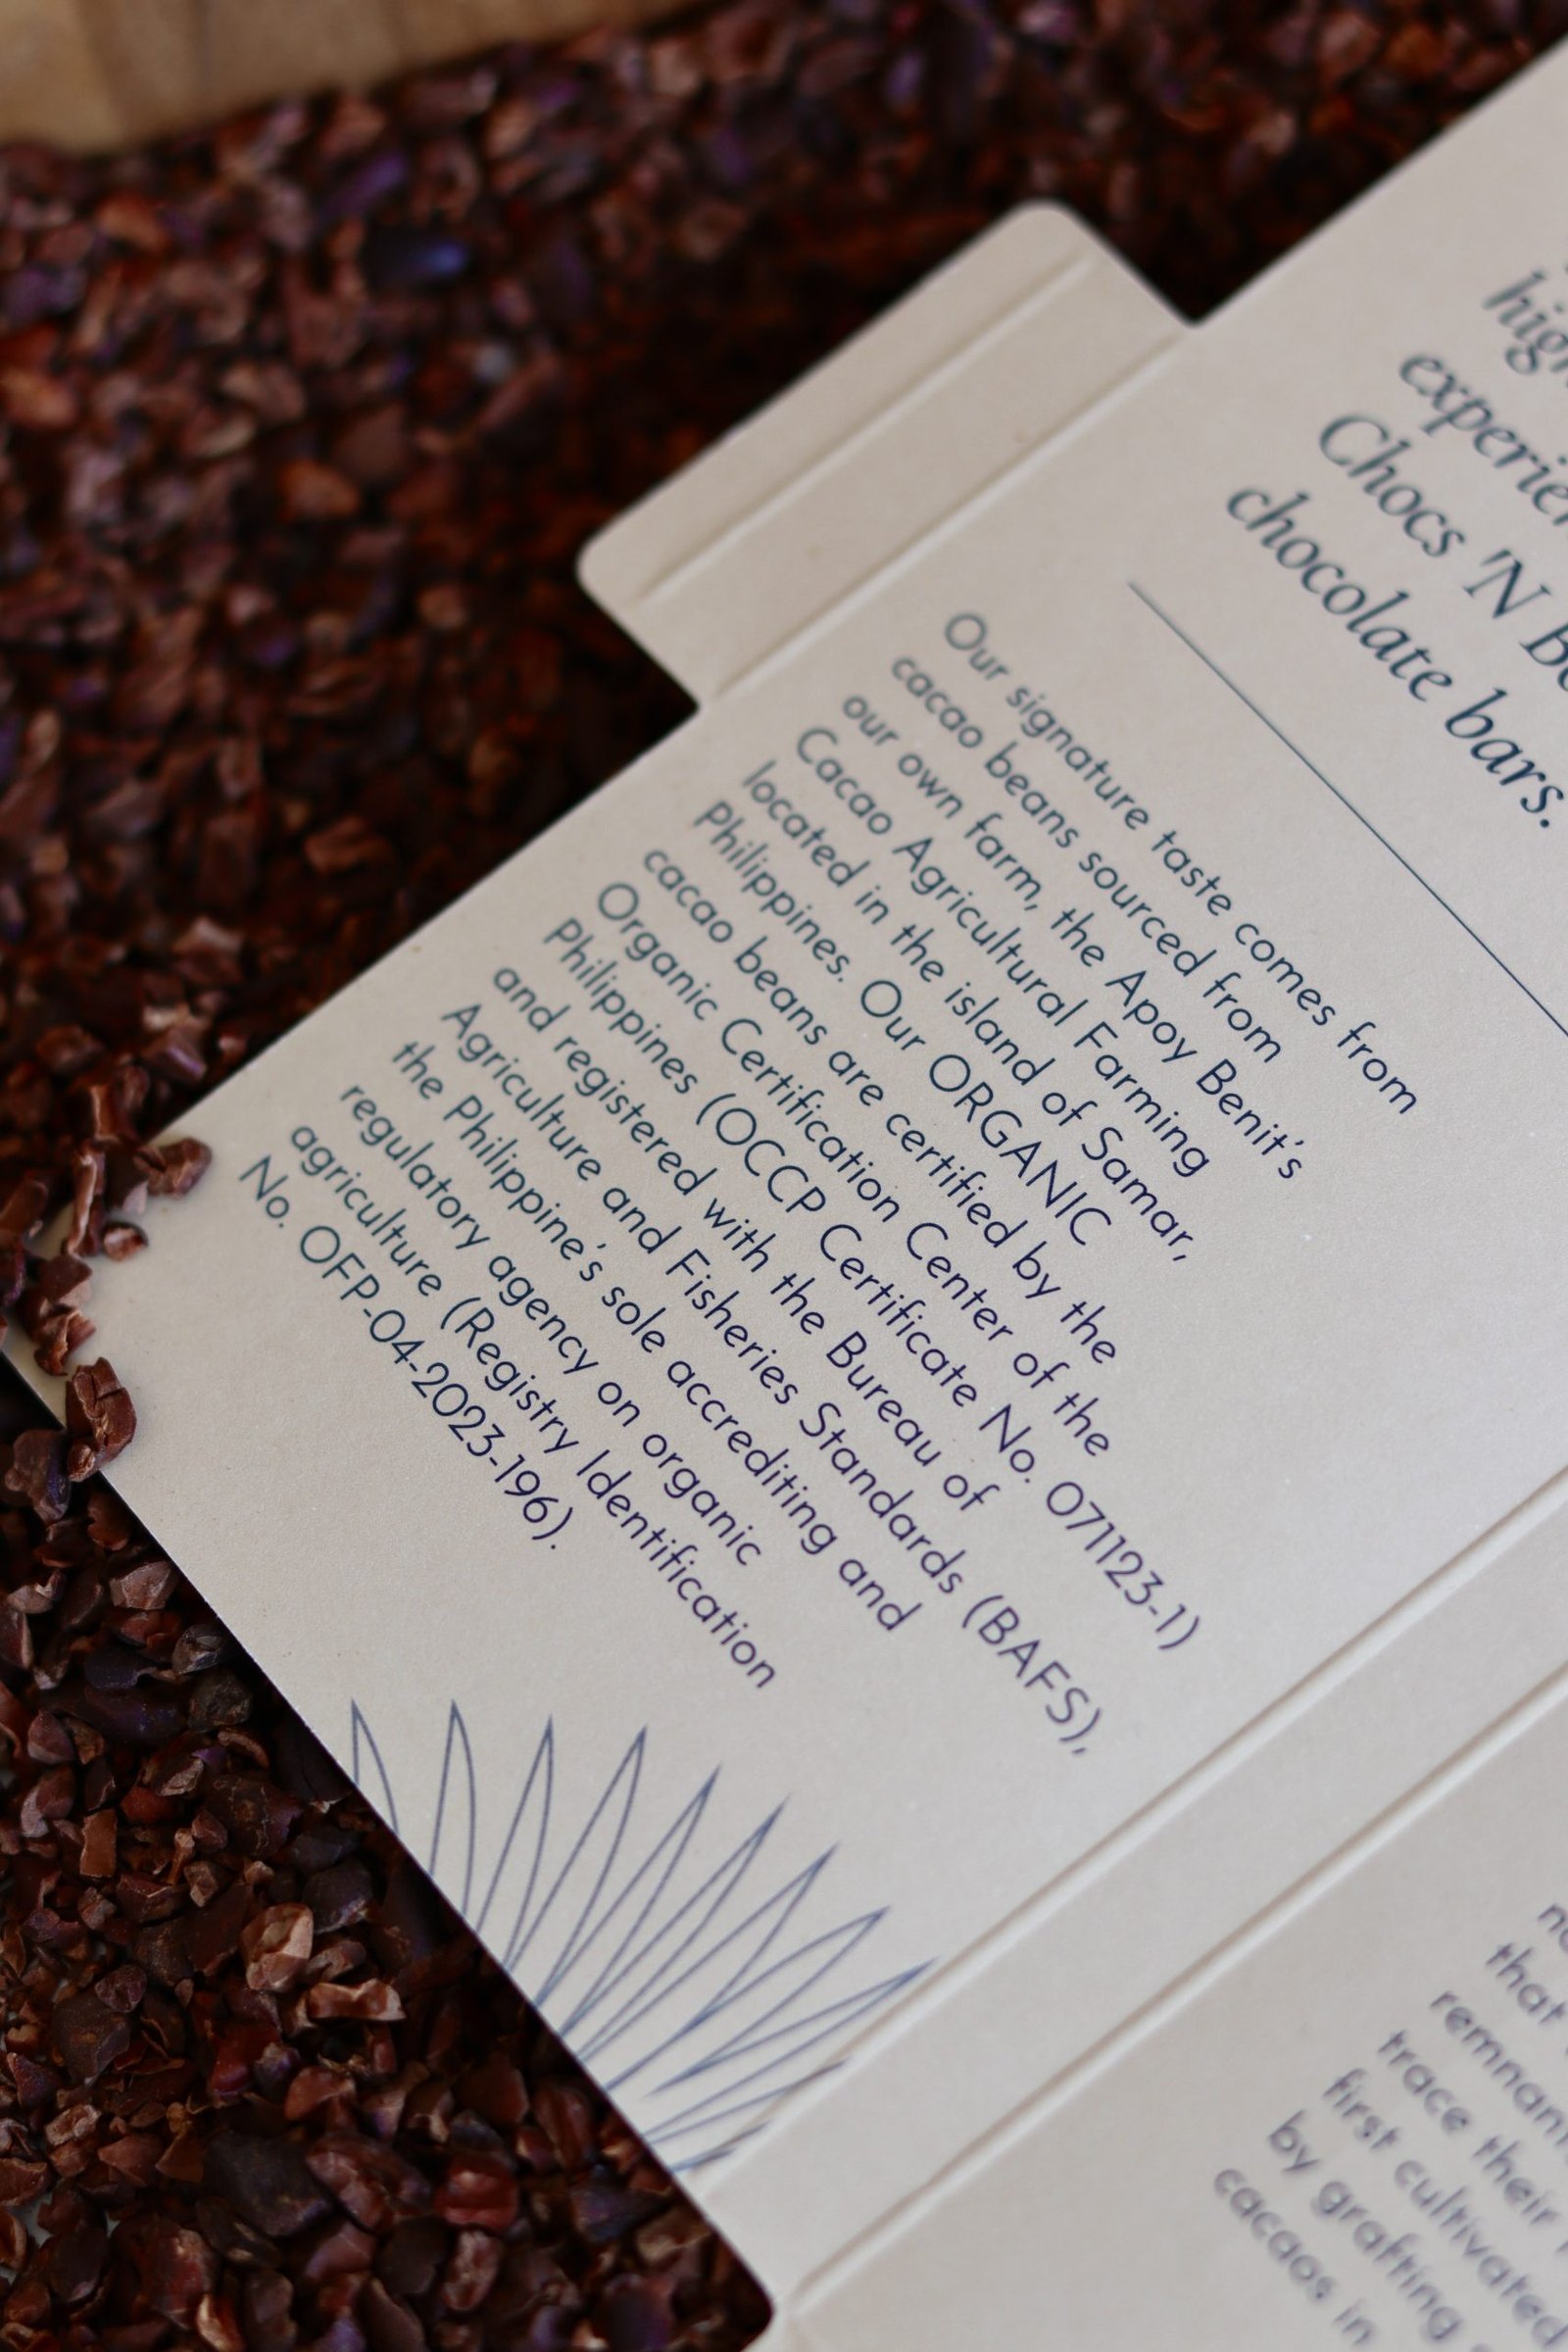 Chocs 'N
chocolate bars.
Our signature taste comes from
cacao beans sourced from
our own farm, the Apoy Benit's
Cacao Agricultural Farming
located in the island of Samar,
Philippines. Our ORGANIC
cacao beans are certified by the
Organic Certification Center of the
Philippines (OCCP Certificate No. 071123-1)
and registered with the Bureau of
Agriculture and Fisheries Standards (BAFS),
the Philippine's sole accrediting and
regulatory agency on organic
agriculture (Registry Identification
No. OFP-04-2023-196).
that
trace their
first cultivated
by grafting
cacaos in